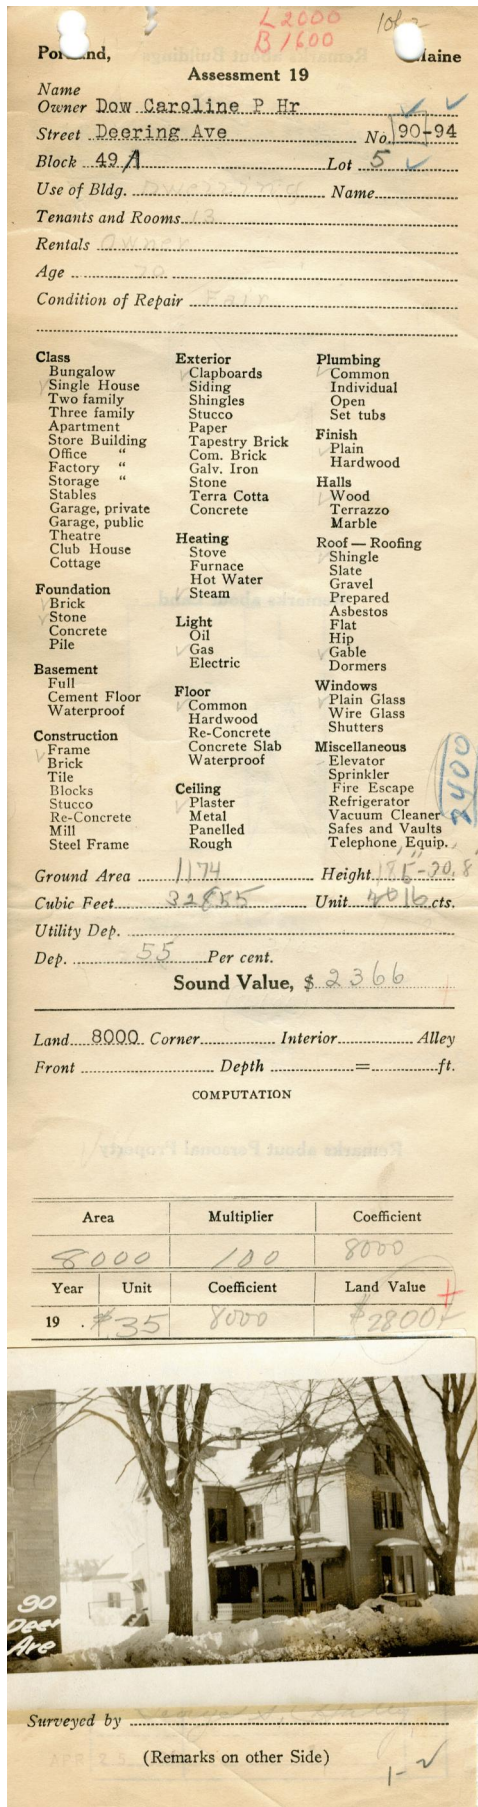 L 2000
B 1600
1 of 2
Portland, Maine
Assessment 19
Name
Owner Dow Caroline P Hr
Street Deering Ave No. 90-94
Block 49 A Lot 5
Use of Bldg. Dwelling Name
Tenants and Rooms 13
Rentals Owner
Age 70
Condition of Repair Fair
Class
Bungalow
Single House
Two family
Three family
Apartment
Store Building
Office "
Factory "
Storage "
Stables
Garage, private
Garage, public
Theatre
Club House
Cottage
Foundation
Brick
Stone
Concrete
Pile
Basement
Full
Cement Floor
Waterproof
Construction
Frame
Brick
Tile
Blocks
Stucco
Re-Concrete
Mill
Steel Frame
Exterior
Clapboards
Siding
Shingles
Stucco
Paper
Tapestry Brick
Com. Brick
Galv. Iron
Stone
Terra Cotta
Concrete
Heating
Stove
Furnace
Hot Water
Steam
Light
Oil
Gas
Electric
Floor
Common
Hardwood
Re-Concrete
Concrete Slab
Waterproof
Ceiling
Plaster
Metal
Panelled
Rough
Plumbing
Common
Individual
Open
Set tubs
Finish
Plain
Hardwood
Halls
Wood
Terrazzo
Marble
Roof — Roofing
Shingle
Slate
Gravel
Prepared
Asbestos
Flat
Hip
Gable
Dormers
Windows
Plain Glass
Wire Glass
Shutters
Miscellaneous
Elevator
Sprinkler
Fire Escape
Refrigerator
Vacuum Cleaner
Safes and Vaults
Telephone Equip.
2400
Ground Area 1174 Height
Cubic Feet 32855 Unit cts.
Utility Dep.
Dep. 55 Per cent.
Sound Value, $ 2366
Land 8000 Corner Interior Alley
Front Depth = ft.
COMPUTATION
Area Multiplier Coefficient
8000 100 8000
Year Unit Coefficient Land Value
19 . $35 8000 $2800
90
Deer
Ave
Surveyed by
APR 25
(Remarks on other Side)
1-2